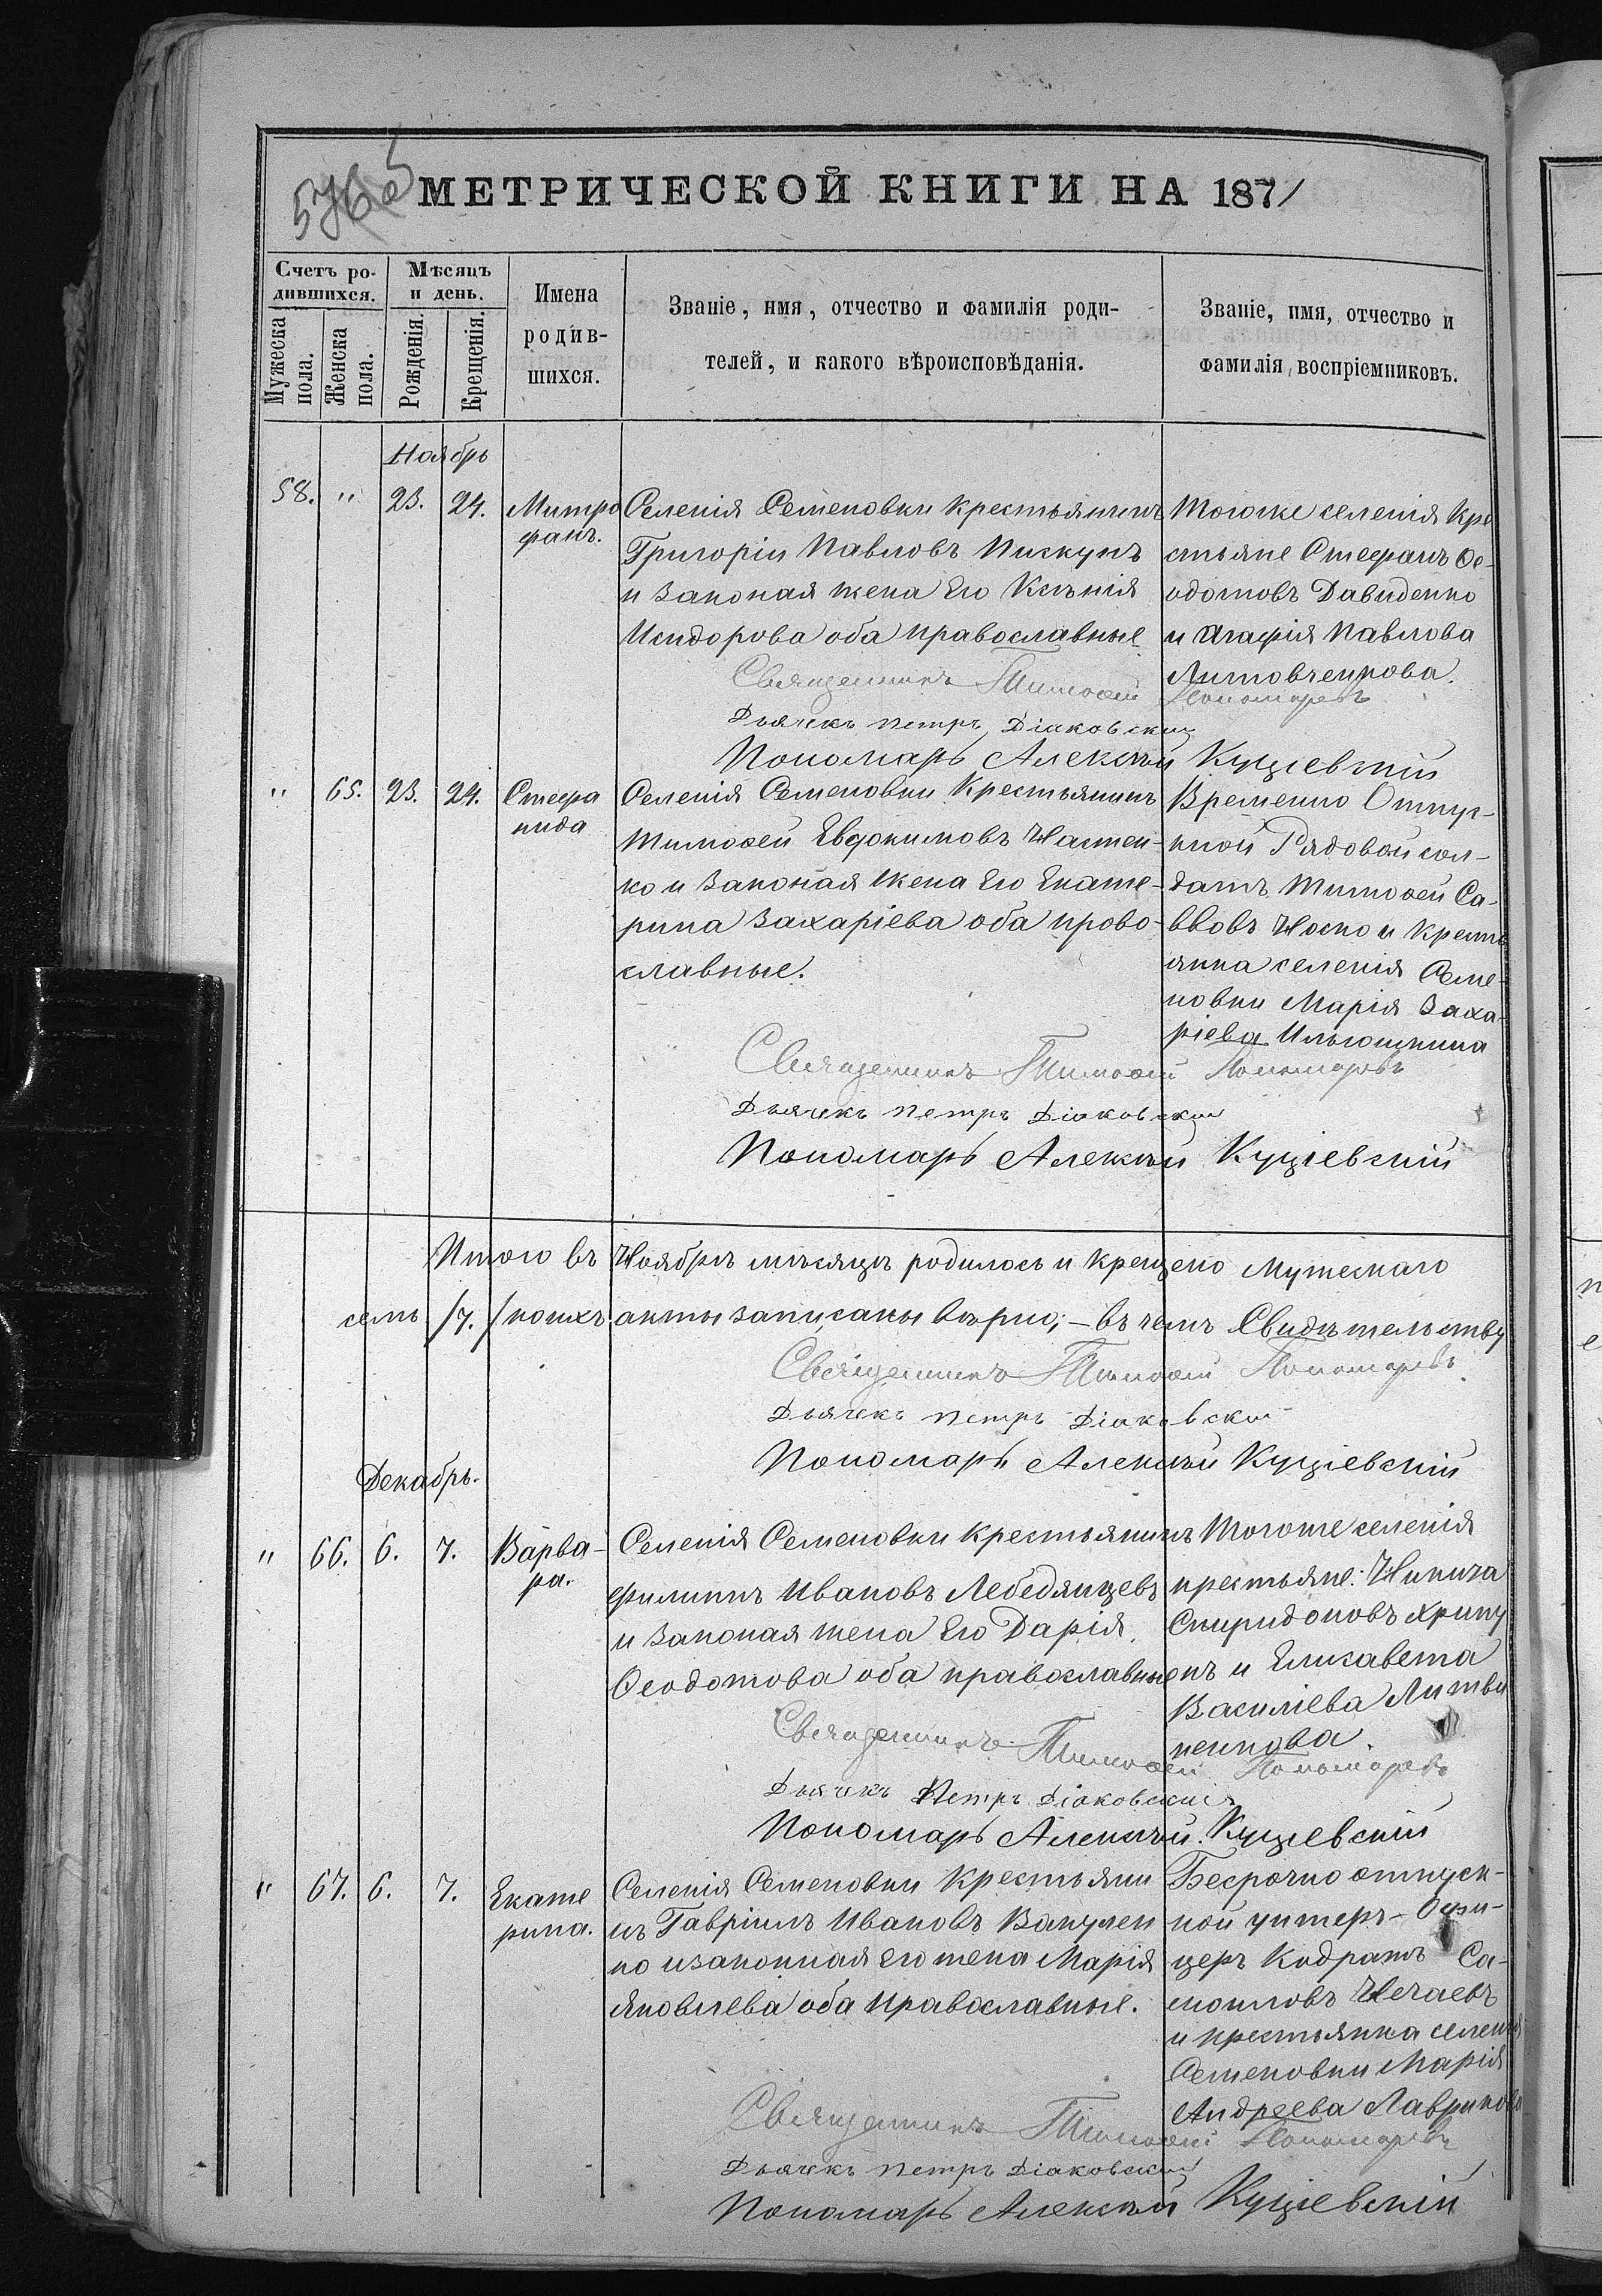 МЕТРИЧЕСКОЙ КНИГИ НА 1871
Счетъ ро-
дившихся.
Мужеска
пола.
Женска
пола.
Мѣсяцъ
и день.
Рожденія.
Крещенія.
Имена
родив-
шихся.
Званіе, имя, отчество и фамилія роди-
телей, и какого вѣроисповѣданія.
Званіе, имя, отчество и
фамилія воспріемниковъ.
Ноябрь
58. " 23. 24.
Митро
фанъ.
Селенія Семеновки Крестьянинъ
Григорій Павловъ Пискунъ
и законая жена Его Ксѣнія
Исидорова оба православные
Тогоже селенія Кре
стьяне Стефанъ Ѳе-
одотовъ Давиденко
и Агафія Павлова
Литовченкова.
Священникъ Тимоѳей Пономаревъ
Дьячекъ Петръ Діаковскій
Пономарь Алексѣй Кущевскій
" 65. 23. 24.
Стефа
нида
Селенія Семеновки Крестьянинъ
Тимоѳей Евдокимовъ Настен-
ко и законая Жена Его Екате-
рина Захаріева оба право-
славные.
Временно Отпус-
кной Рядовой сол-
датъ Тимоѳей Са-
ввовъ Носко и Кресть
янка селенія Семе-
новки Марія Заха-
ріева Ильюшкина
Священникъ Тимоѳей Пономаревъ
Дьячекъ Петръ Діаковскій
Пономарь Алексѣй Кущевскій
Итого въ Ноябрѣ мѣсяцѣ родилось и крещено Мужескаго
семь /7./ коихъ акты записаны вѣрно; – въ чемъ Свидѣтельству
Священникъ Тимоѳей Пономаревъ
Дьячекъ Петръ Діаковскій
Пономарь Алексѣй Кущевскій
Декабрь.
" 66. 6. 7.
Варва-
ра.
Селенія Семеновки Крестьянинъ
Филиппъ Ивановъ Лебедянцевъ
и законая жена Его Дарія
Ѳеодотова оба православные
Тогоже селенія
крестьяне: Никита
Спиридоновъ Хрипу
нъ и Елисавета
Василіева Литви
ненкова
Священникъ Тимоѳей Пономаревъ
Дьячекъ Петръ Діаковскій
Пономарь Алексѣй Кущевскій
" 67. 6. 7.
Екате
рина.
Селенія Семеновки Крестьяни
нъ Гавріилъ Ивановъ Вакулен
ко и законная его жена Марія
Яковлева оба Православные.
Бесрочно отпуск-
ной унтеръ-Офи-
церъ Кодратъ Са-
моиловъ Нечаевъ
и крестьянка селенія
Семеновки Марія
Андреева Лаврикова
Священникъ Тимоѳей Пономаревъ
Дьячекъ Петръ Діаковскій
Пономарь Алексѣй Кущевскій